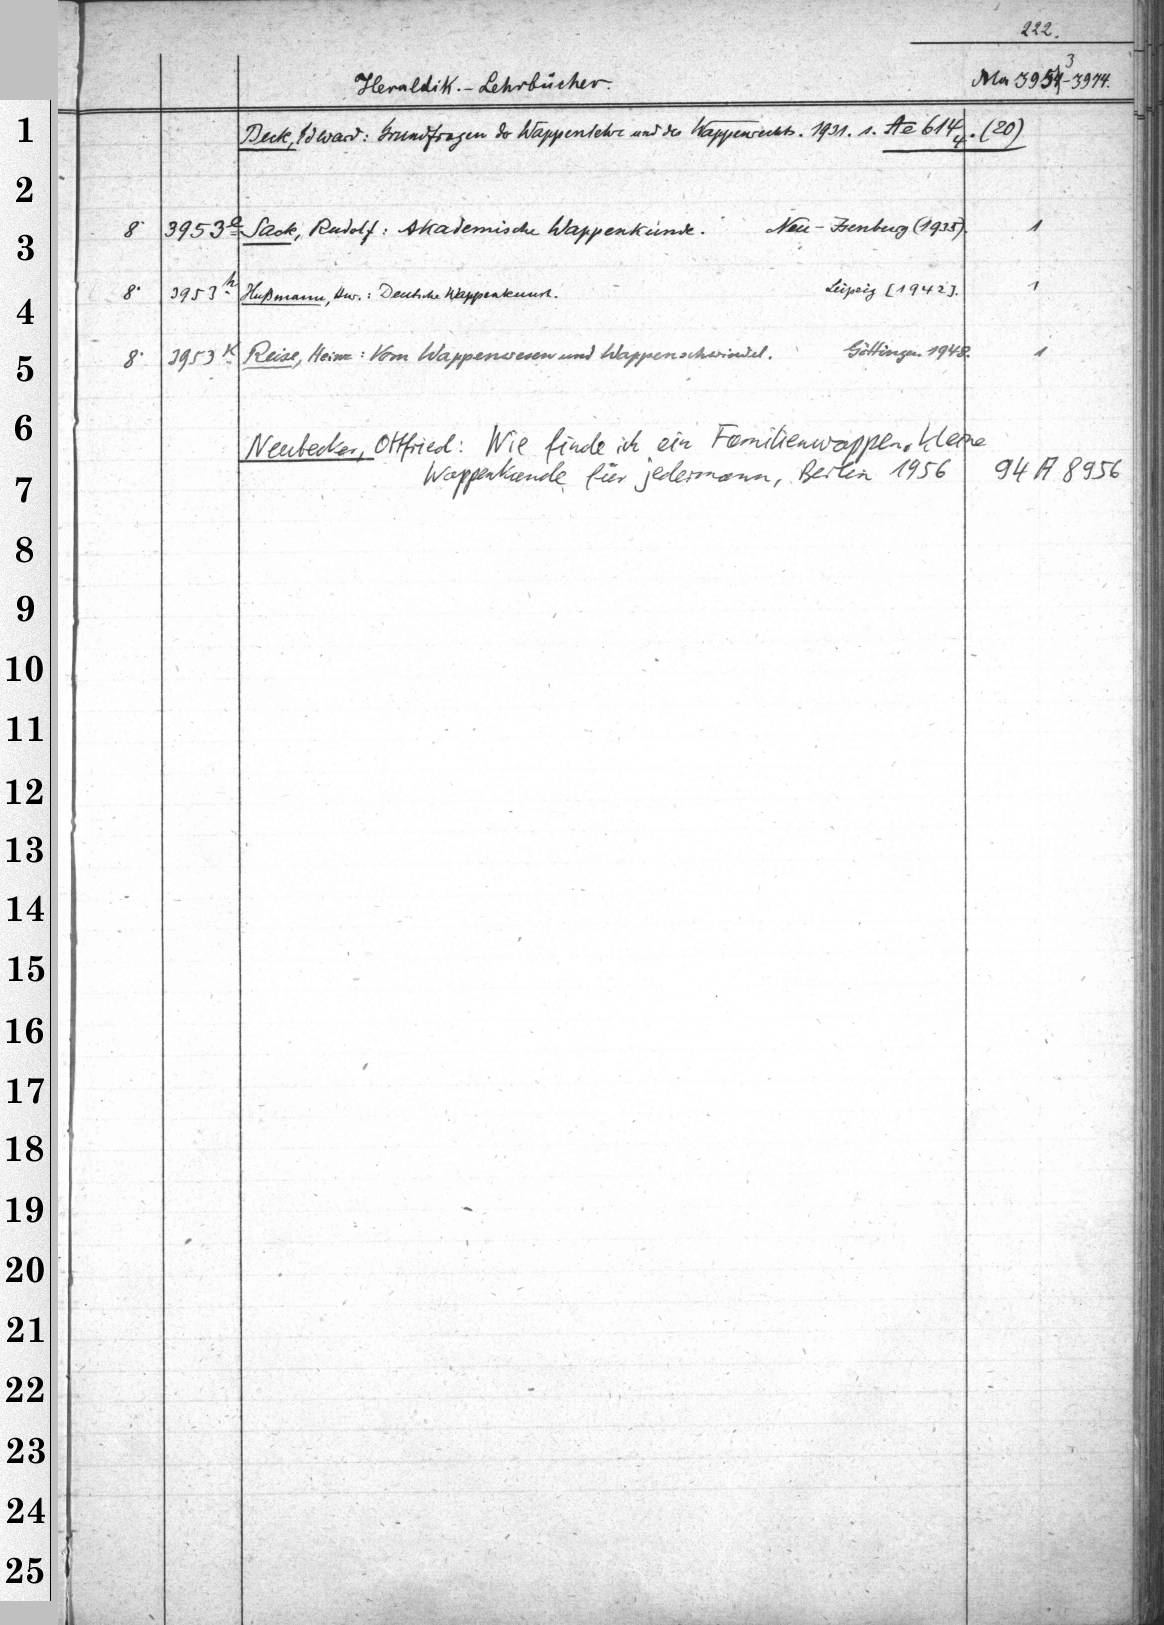 222.
Heraldik.-Lehrbücher. Ma 3953-3974.
1 Beck, Edward: Grundfragen der Wappenlehre und des Wappenrechts. 1931. s. Ae 614 4. (20)
2
3 8° 3953 Sack, Rudolf: Akademische Wappenkunde. Neu-Isenburg (1935). 1
4 8° 3953 h Hußmann, Hnr.: Deutsche Wappenkunst. Leipzig [1942]. 1
5 8° 3953 k Reise, Heinz: Vom Wappenwesen und Wappenschwindel. Göttingen 1948. 1
6 Neubecker, Ottfried: Wie finde ich ein Familienwappen. Kleine
7 Wappenkunde für jedermann, Berlin 1956 94 A 8956
8
9
10
11
12
13
14
15
16
17
18
19
20
21
22
23
24
25